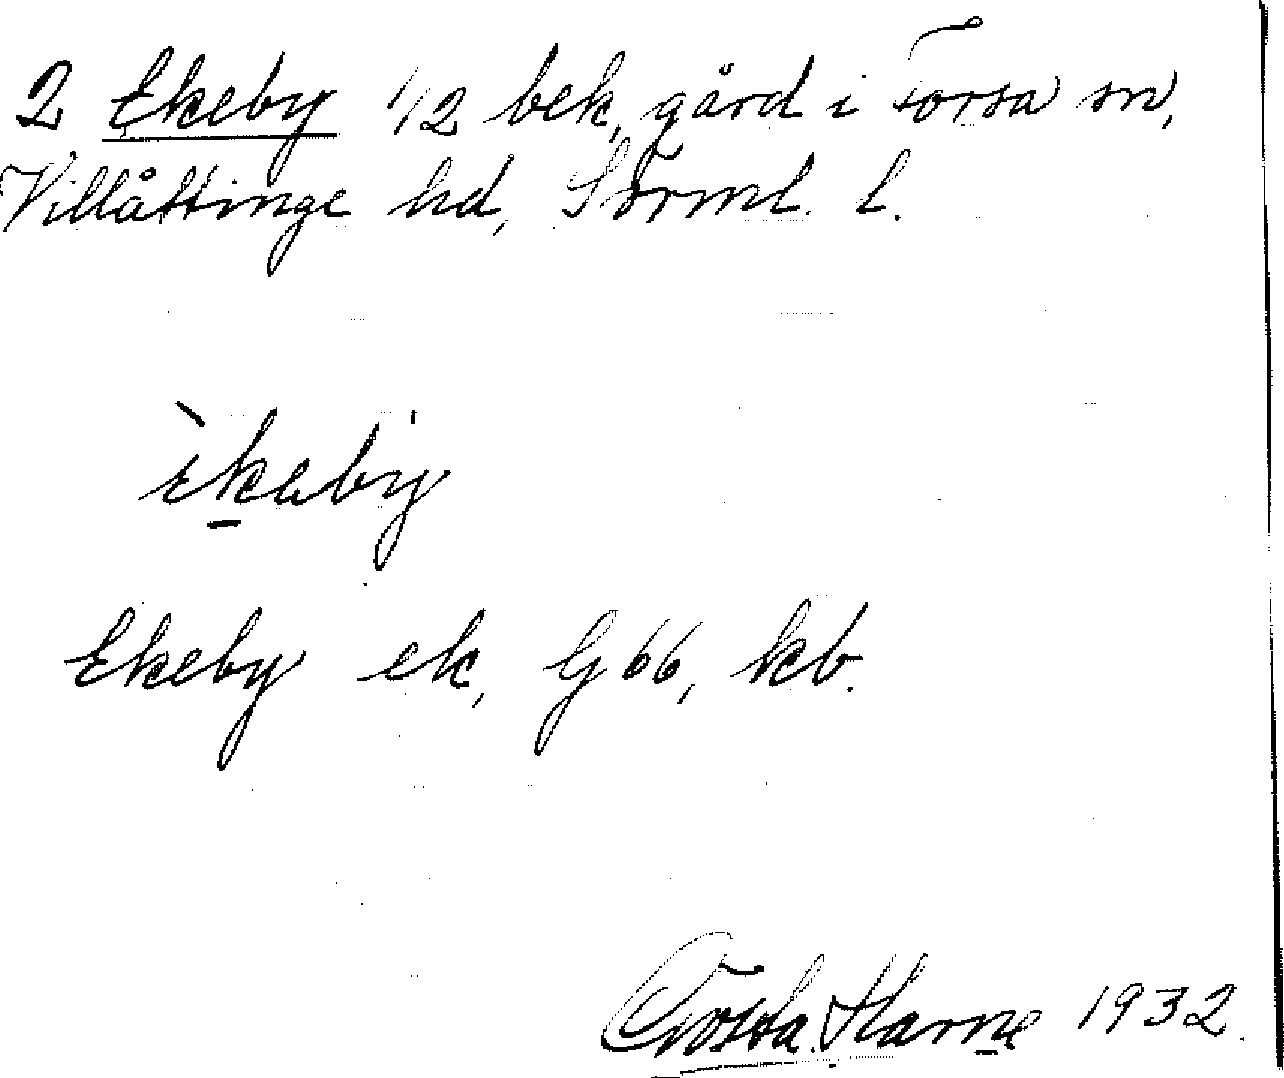 2 Ekeby 1/2 bek, gård i Forsa sn,
Villåttinge hd, Sörml. l.
èkeby
Ekeby ek, G 66, kb.
Gösta Harne 1932.